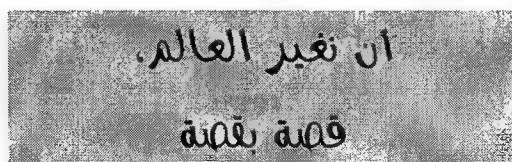 أن نغير العالم،
قصة بقصة